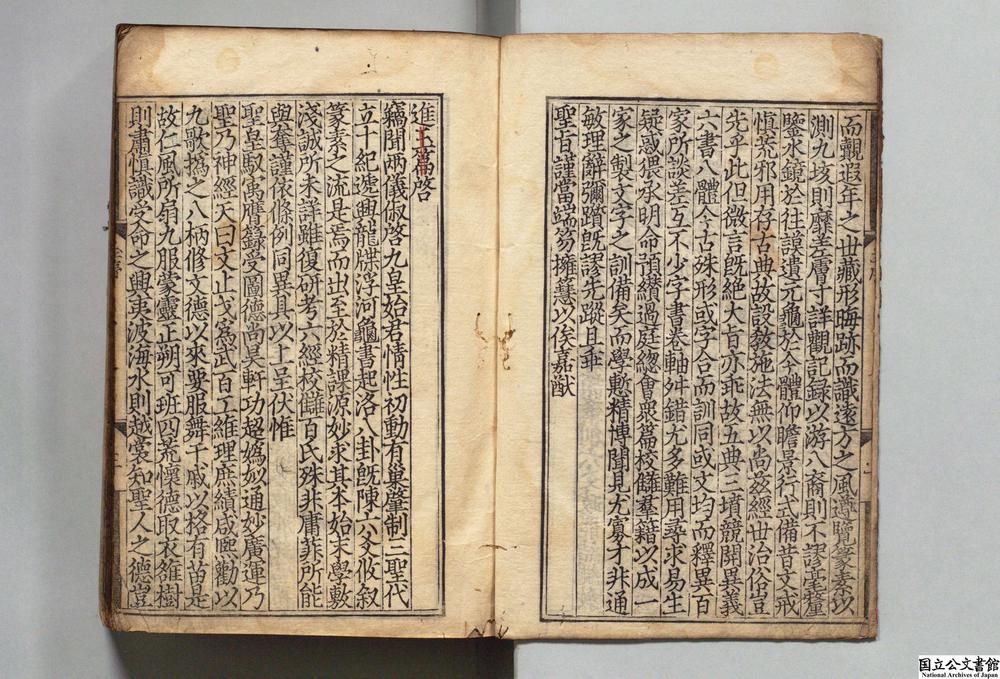 而觀遐年之世藏形晦跡而識遠方之風遵覽篆素以
測九垓則靡差膚寸詳觀記錄以游八裔則不謬雲釐
鑒水鏡於往謨遺元龜於今體仰瞻景行式備昔文戒
慎荒邪用存古典故設教施法無以尚茲經世治俗豈
先乎此但微言既絕大旨亦乖故五典三墳競開異義
六書八體今古殊形或字合而訓同或文均而釋異百
家所談差互不少字書卷軸舛錯尤多難用尋求易生
疑惑猥承明命預纘過庭總會衆篇校讎羣籍以成一
家之製文字之訓備矣而學慙精博聞見尤寡才非通
敏理辭彌躓既謬先蹤且乖
聖旨謹當端笏擁篲以俟嘉猷
進玉篇啓
竊聞兩儀俶啓九皇始君情性初動有巢肇制三聖代
立十紀遞興龍牒浮河龜書起洛八卦既陳六文攸叙
篆素之流是焉而出至於精課源妙求其本始末學敷
淺誠所未詳雖復研考六經校讎百氏殊非庸菲所能
與奪謹依條例同異具以上呈伏惟
聖皇馭㝢膺籙受圖德尚昊軒功超嬀姒通妙廣運乃
聖乃神經天曰文止戈爲武百工維理庶績咸熙勸以
九歌撝之八柄修文德以來要服舞干戚以格有苗是
故仁風所扇九服蒙靈正朔可班四荒懷德取衣雒樹
則肅愼識受命之興夷波海水則越裳知聖人之德豈
国立公文書館
National Archives of Japan